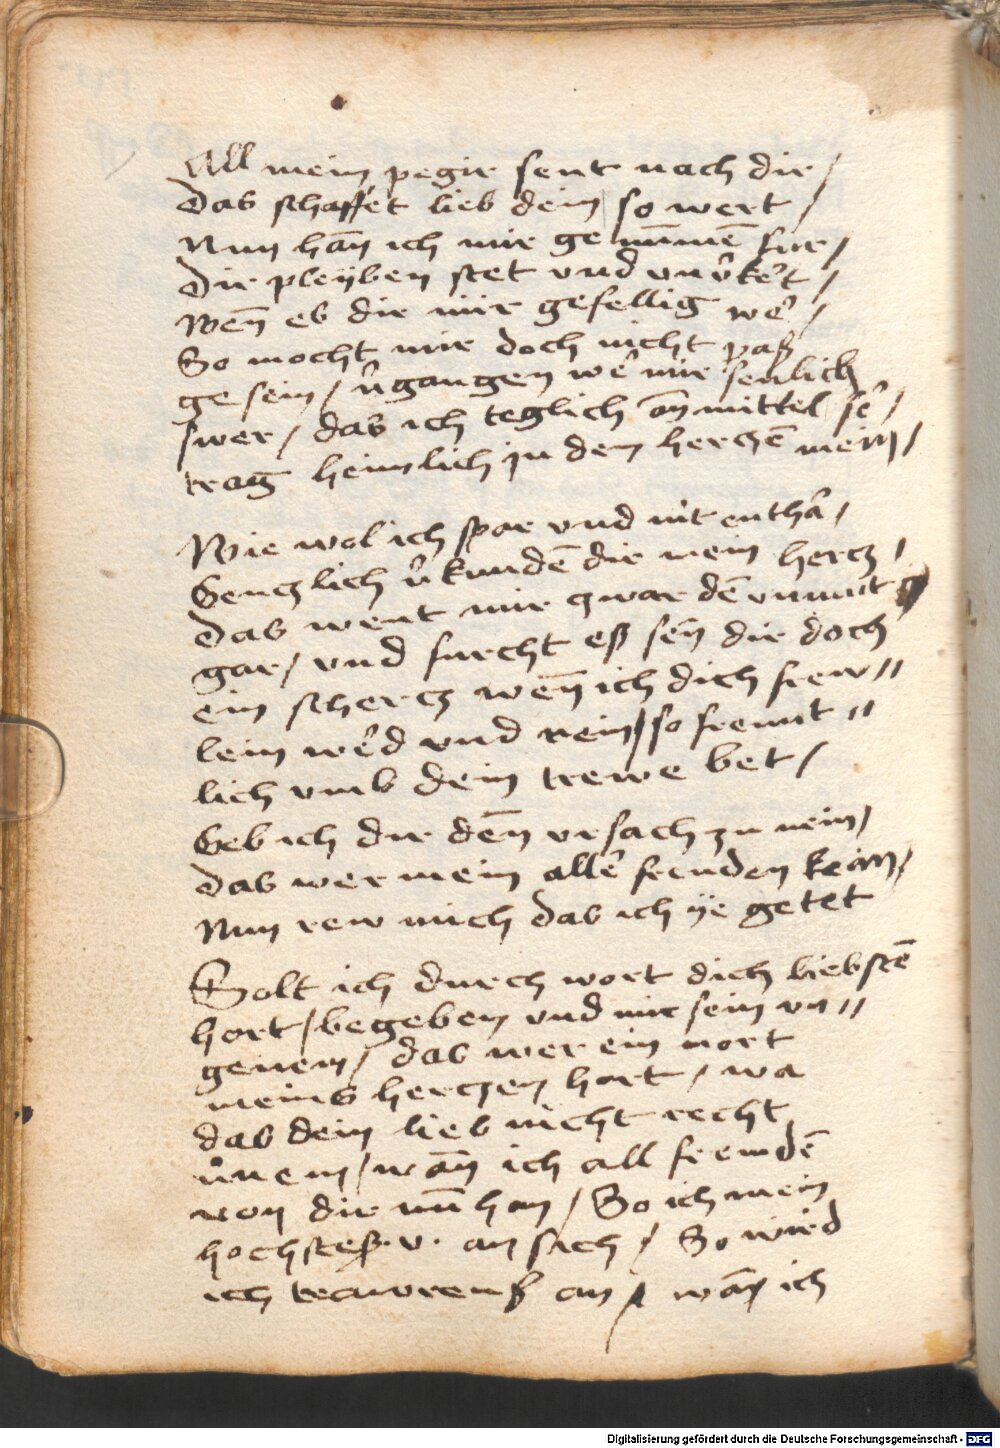 All mein pegir sent nach dir /
Das schaffet lieb dein so wert /
Nun han̄ ich mir ge nūmē fur /
Die pleyben stet vnd vnv̂kert /
Wen̄ es dir mir gefellig we᷑ /
So mocht mir doch nicht paß
ge sein / v̂gangen we᷑ mir senlich
swer / das ich teglich on̄ mittel se᷑ /
trag heimlich in dem herczē mein /
Wie wol ich spar vnd nit enthar /
Genczlich v̂kundē dir mein hercz /
Das went mir zwar dē vnmut
gar / vnd furcht eß sey dir doch
ein schercz wen̄ ich dich frew //
lein we᷑d vnd rein / so freunt //
lich vmb dein trewe bet /
Geb ich dir den̄ vrsach zu nein /
das wer mein alle᷑ freuden kein /
Nun rew mich das ich ye getet
Solt ich durch wort dich liebstē
hort / begeben vnd mir sein vn //
genem / das wer ein mort
meins herczen hort / wa
das dein lieb nicht recht
v̂nem / wan̄ ich all fremdē
von dir nū̄ han / So ich mein
hochsteß . v . an sach / So wird
ich trawrenß an / wan̄ ich
Digitalisierung gefördert durch die Deutsche Forschungsgemeinschaft - DFG